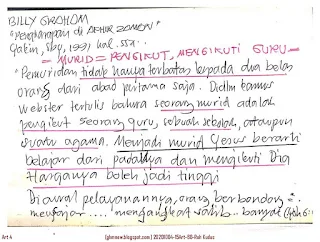 BILLY GROHOM
"Pengharapan di AKHIR ZAMEN"
Yakin, Sby, 1997 hal. 55A..
= MURID = PENGIKUT, MENGIKUTI GURU -
"Pemuridan tidak hanya terbatas kepada dua belas
orang dari abad pertama saja. Didlm kamus
Webster tertulis bahwa seorang murid adalah
pengikut seorang guru, sebuah sekolah, ataupun
suatu agama. Menjadi murid Yesus berarti
belajar dari padaNya dan mengikuti Dia
Harganya boleh jadi tinggi
Diawal pelayanannya, orang berbondong2
mengejar .... mengangkat salib.. banyak
Art 4